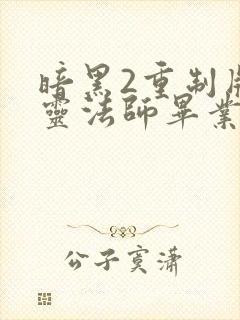 暗黑2重制版
靈法師畢業
公子寞瀟